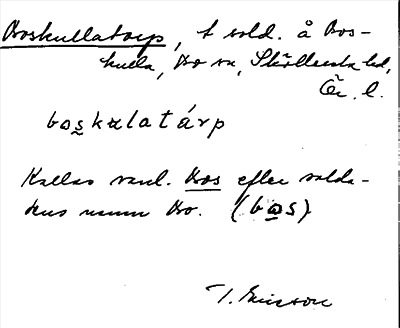 Boskullatorp, t sold. å Bos-
kulla, Bo sn, Sköllersta hd,
Ör. l.
boskulatárp
Kallas vanl. Bos efter solda-
tens namn Bo. (bos)
T. Ericson